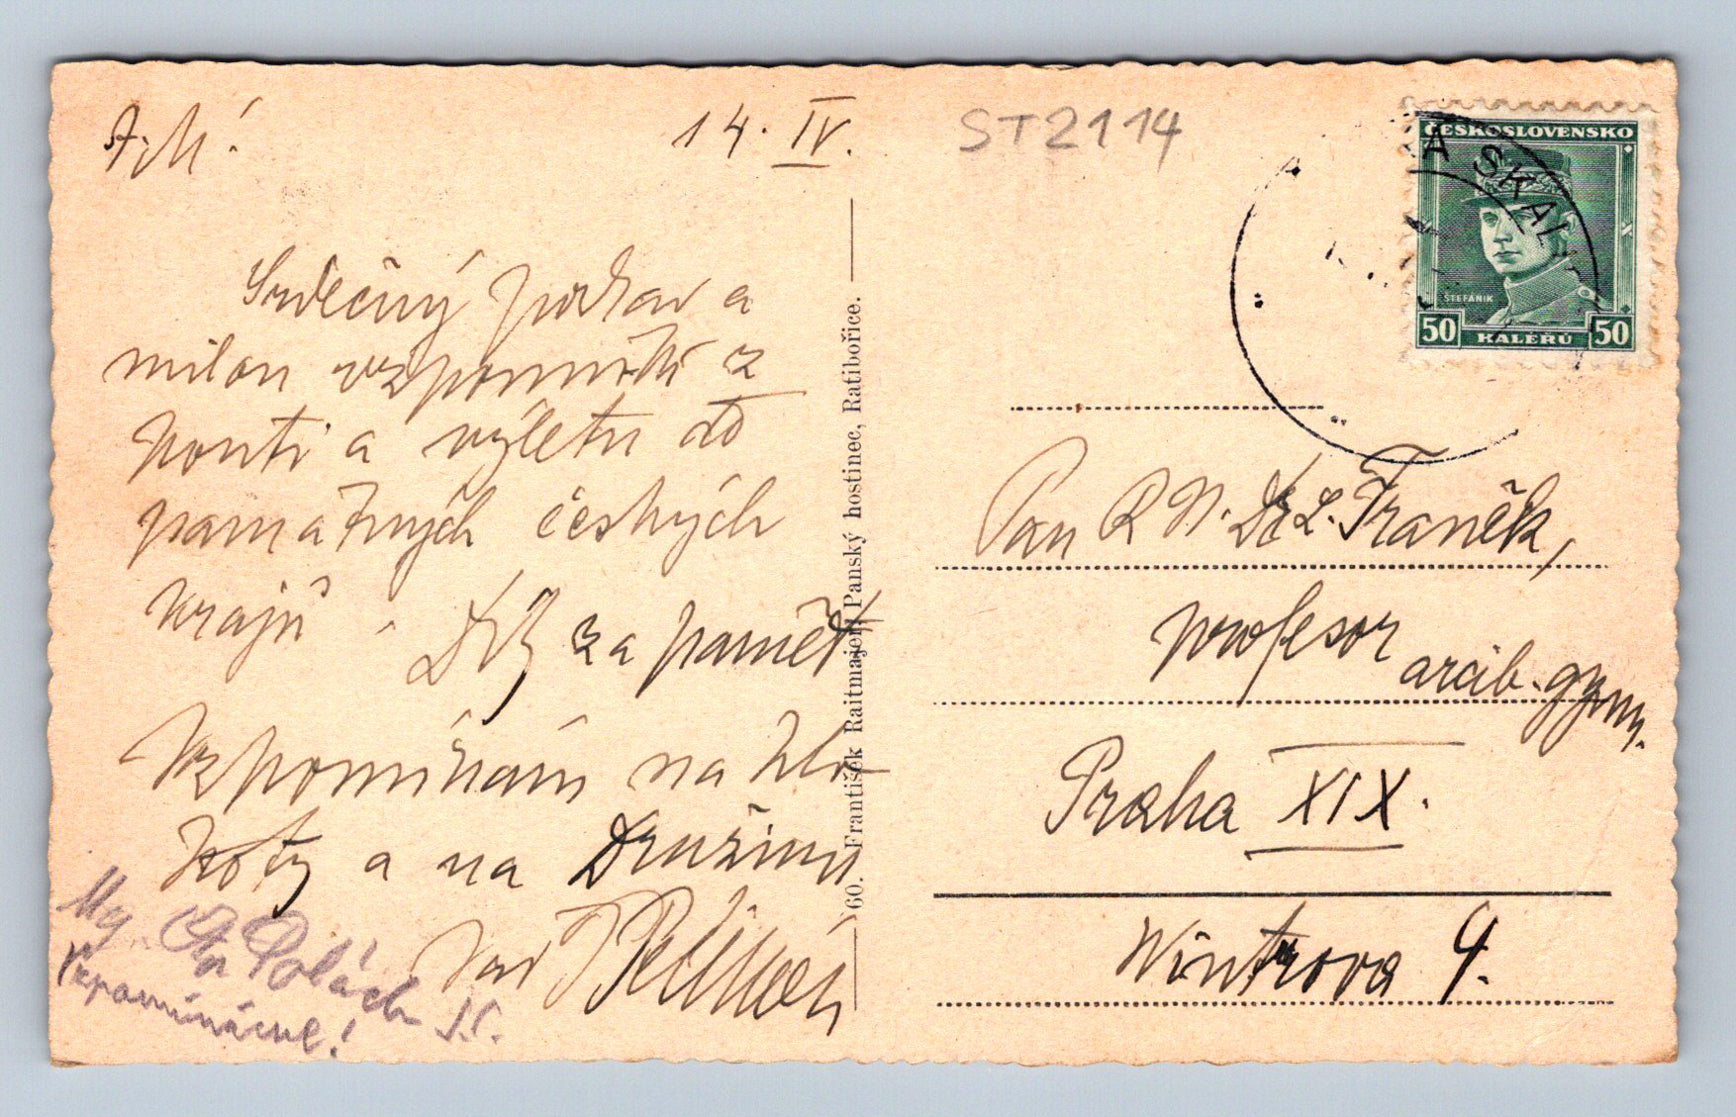 14. IV.
ST2114
Srdečný pozdrav a
milou vzpomínku z
pouti a výletu do
památných českých
krajů.
Dík za paměť
Vzpomínám na
a na Družinu
Polách
Vzpomínáme!
60. František Raitmajer, Panský hostinec, Ratibořice.
ČESKOSLOVENSKO
ŠTEFÁNIK
50 HALÉŘŮ 50
A SKAL
Pan
Dr L. Franěk,
profesor
arcib. gymn.
Praha XIX.
Wintrova 4.